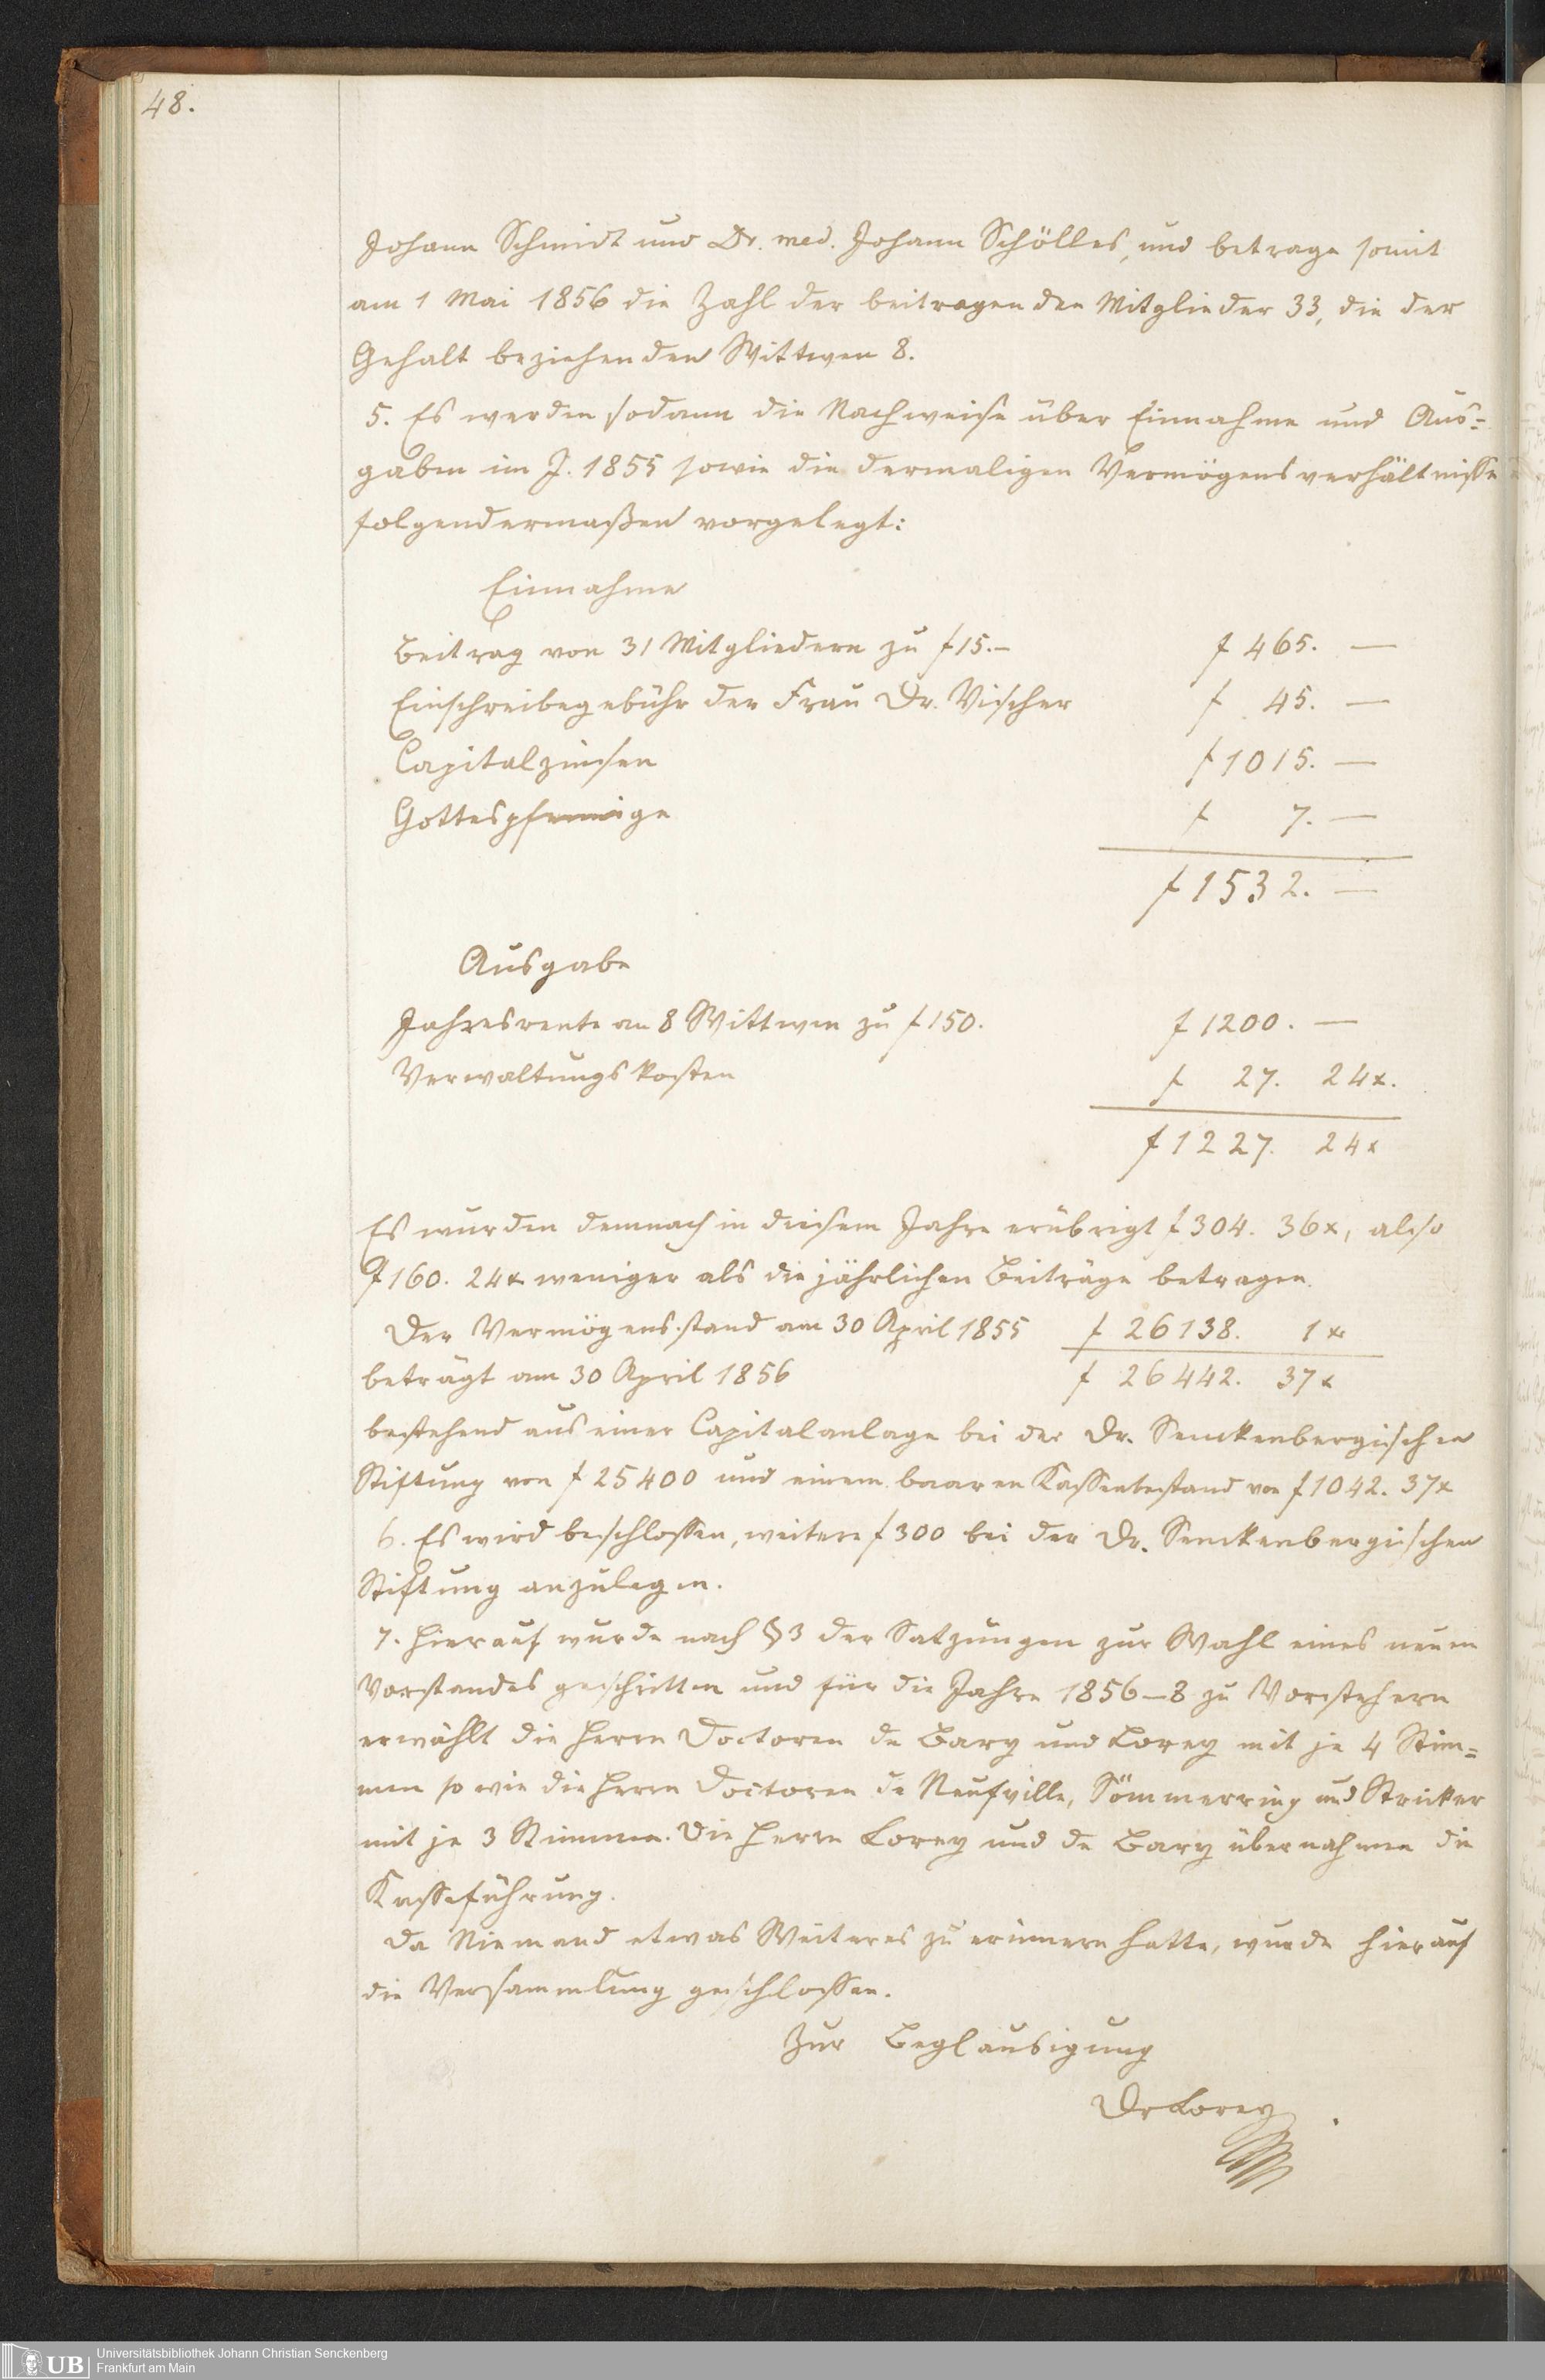 48.
Johann Schmidt und Dr. med. Johann Schölles, und betrage somit
am 1 Mai 1856 die Zahl der beitragenden Mitglieder 33, die der
Gehalt beziehenden Wittwen 8.
5. Es werden sodann die Nachweise über Einnahme und Aus=
gaben im J. 1855 sowie die dermaligen Vermögensverhältnisse
folgendermaßen vorgelegt:
Einnahme
Beitrag von 31 Mitgliedern zu f 15.— f 465. —
Einschreibegebühr der Frau Dr. Vischer f 45. —
Capitalzinsen f 1015. —
Gottespfennige f 7. —
f 1532. —
Ausgabe
Jahresrente an 8 Wittwen zu f 150. f 1200. —
Verwaltungskosten f 27. 24x.
f 1227. 24x
Es wurden demnach in diesem Jahre erübrigt f 304. 36x, also
f 160. 24x weniger als die jährlichen Beiträge betragen.
Der Vermögensstand am 30 April 1855 f 26138. 1x
beträgt am 30 April 1856 f 26442. 37x
bestehend aus einer Capitalanlage bei der Dr. Senckenbergischen
Stiftung von f 25400 und einem baaren Kassenbestand von f 1042. 37x
6. Es wird beschlossen, weitere f 300 bei der Dr. Senckenbergischen
Stiftung anzulegen.
7. Hierauf wurde nach § 3 der Satzungen zur Wahl eines neuen
Vorstandes geschritten und für die Jahre 1856–8 zu Vorstehern
erwählt die Herrn Doctoren de Bary und Lorey mit je 4 Stim=
men so wie die Herrn Doctoren de Neufville, Sömmerring und Stricker
mit je 3 Stimmen. Die Herrn Lorey und de Bary übernahmen die
Kasseführung.
Da Niemand etwas Weiteres zu erinnern hatte, wurde hierauf
die Versammlung geschlossen.
Zur Beglaubigung
Dr Lorey
UB
Universitätsbibliothek Johann Christian Senckenberg
Frankfurt am Main